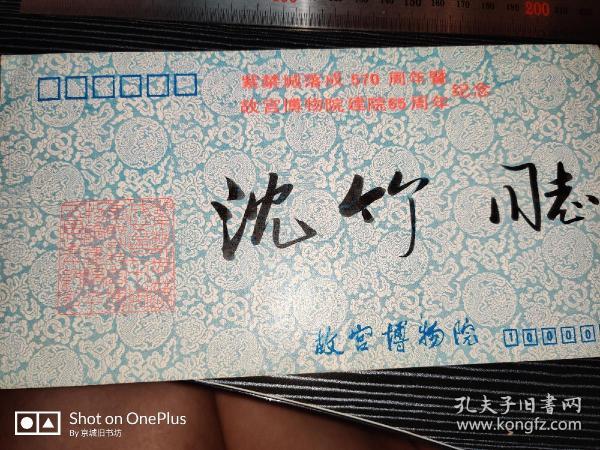 200
紫禁城落成570周年暨
故宫博物院建院65周年
纪念
沈竹 同志
故宫博物院
10000
Shot on OnePlus
By 京城旧书坊
孔夫子旧书网
www.kongfz.com